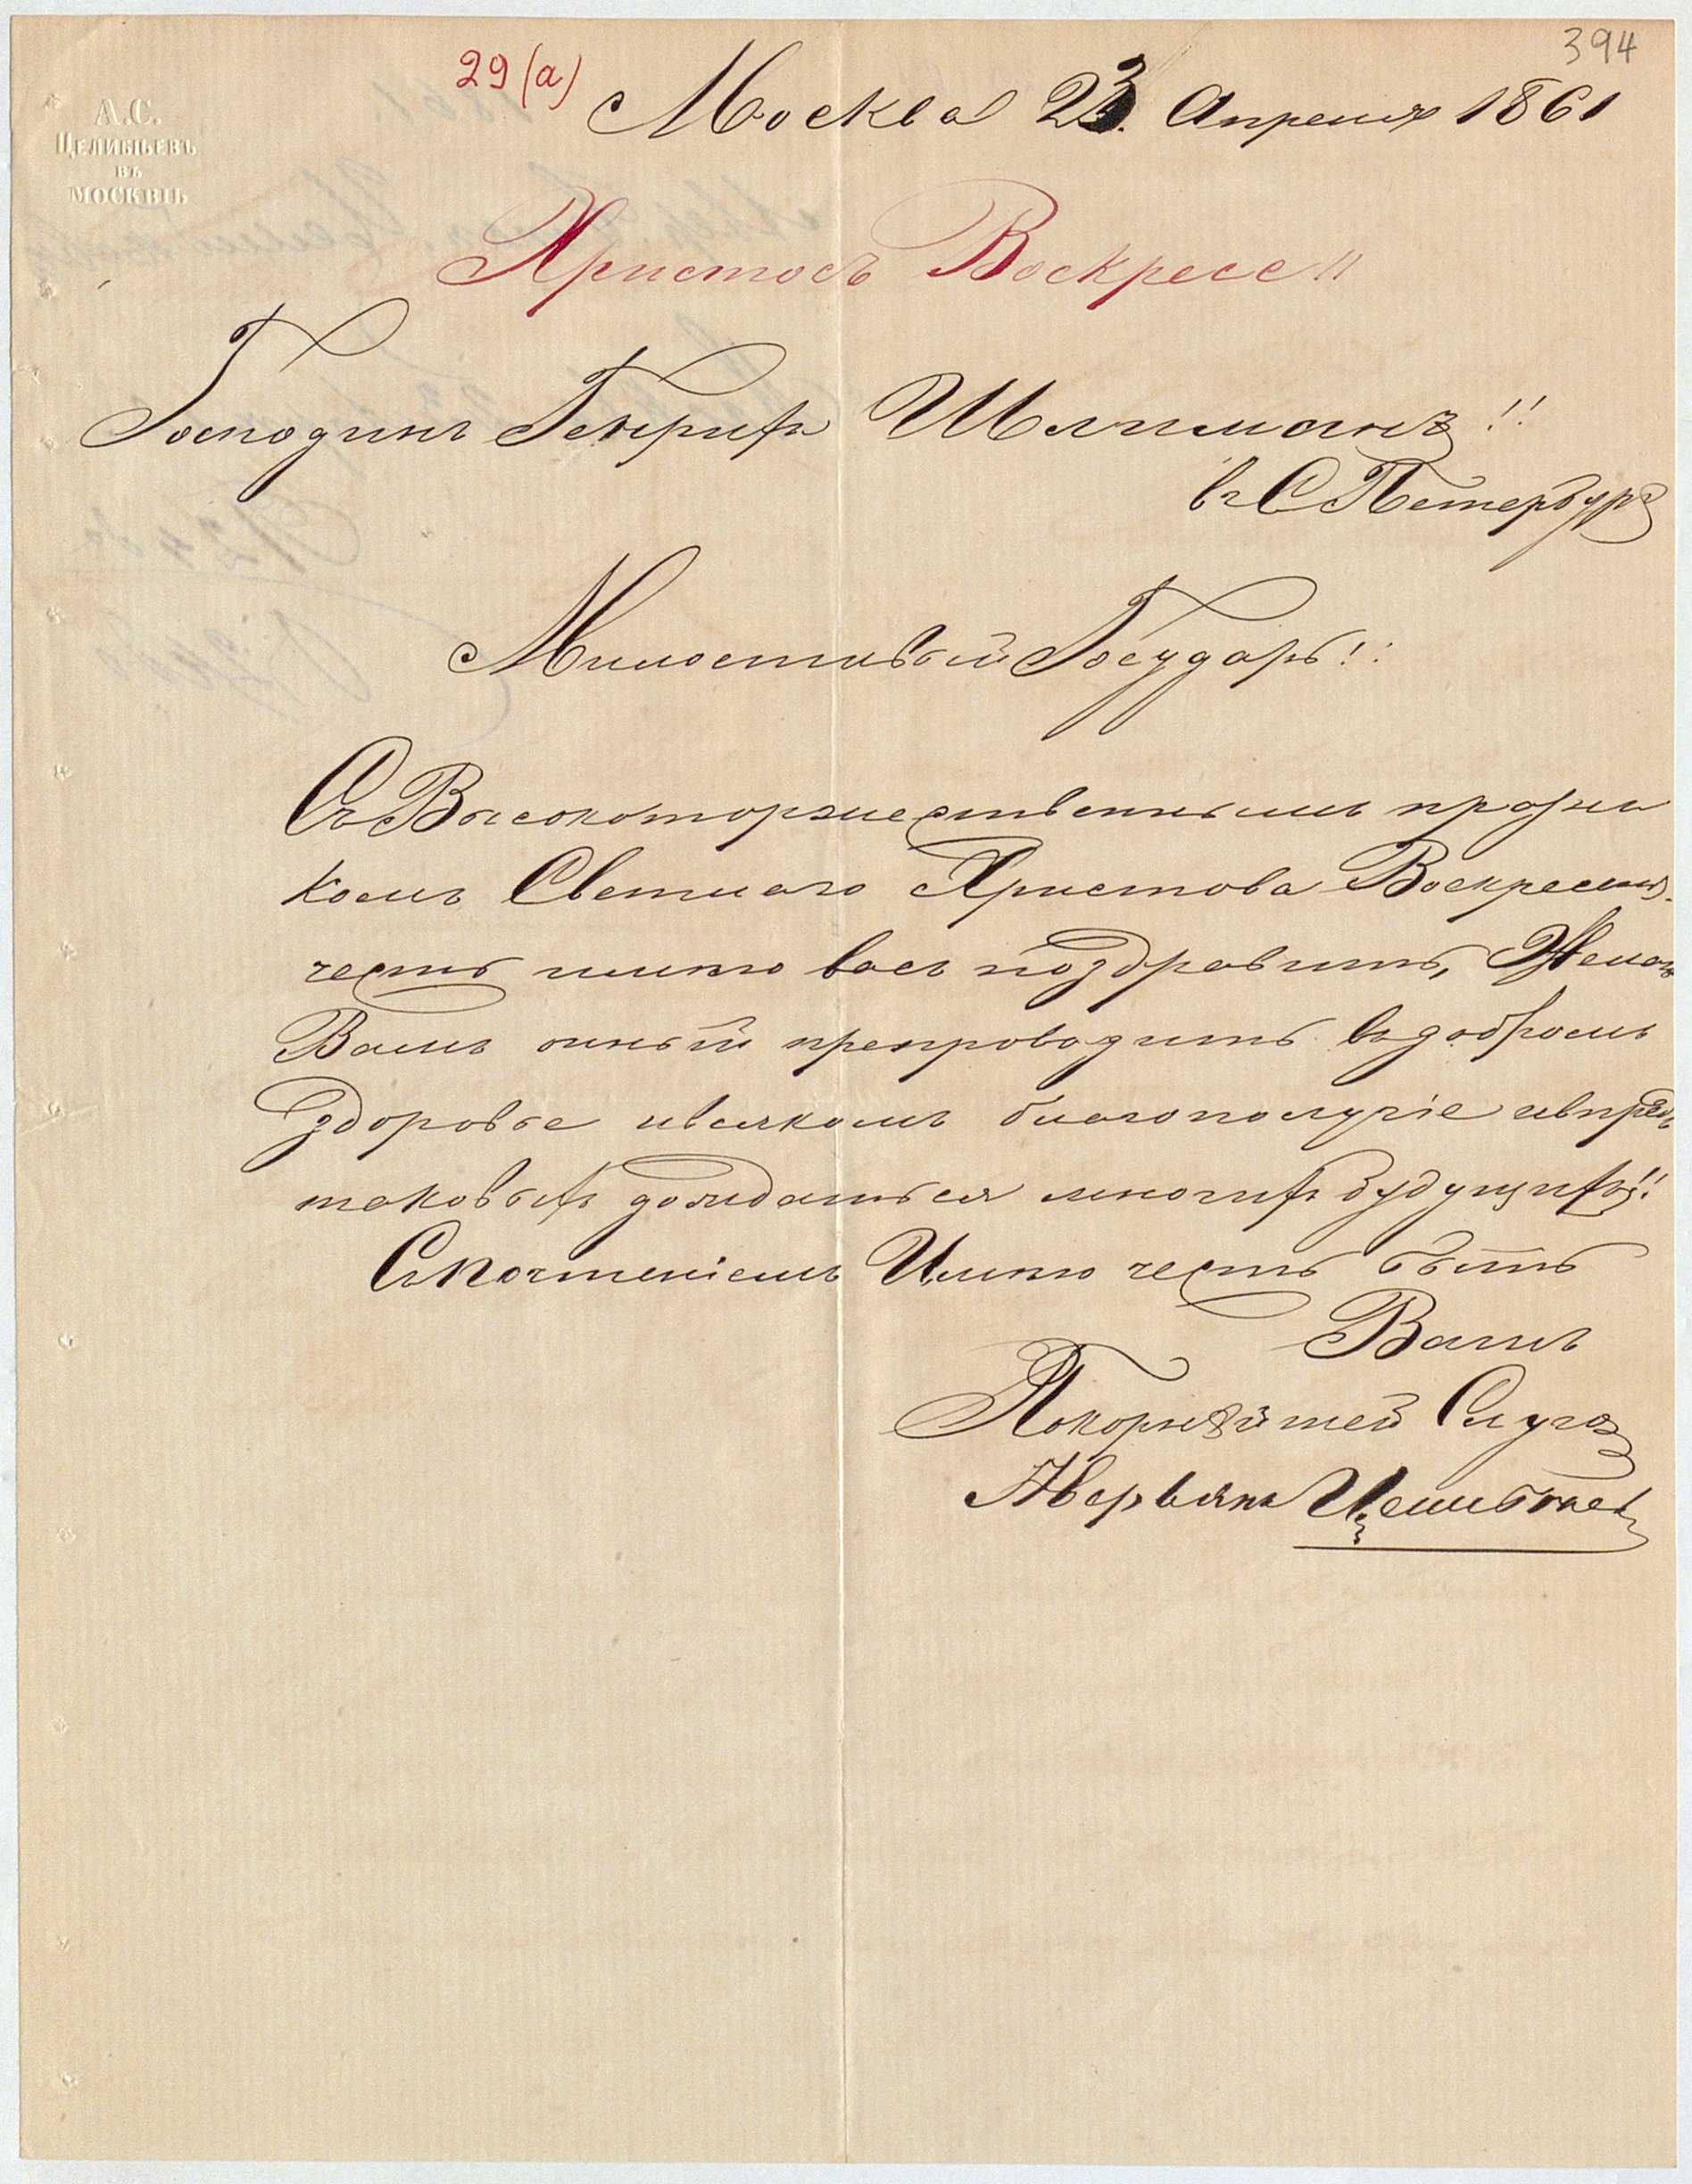 394
29 (а)
А.С.
Целибѣевъ
въ
Москвѣ
Москва 23. Апреля 1861
Христосъ Воскресе!!
Господинъ Генрихъ Шлиманъ!!
въ С Петербургъ
Милостивый Государь!!
Съ Высокоторжественнымъ празни
комъ Светлаго Христова Воскресенія
честь имѣю васъ поздравить, Желаю
Вамъ оный препроводить въ добромъ
здоровье и всякомъ благополучіе и впредь
таковыхъ дожидаться многихъ будущихъ!!
Съ почтеніемъ Имѣю честь быть
Вашъ
Покорнѣйшей Слуга
Аверьянъ Целибѣевъ